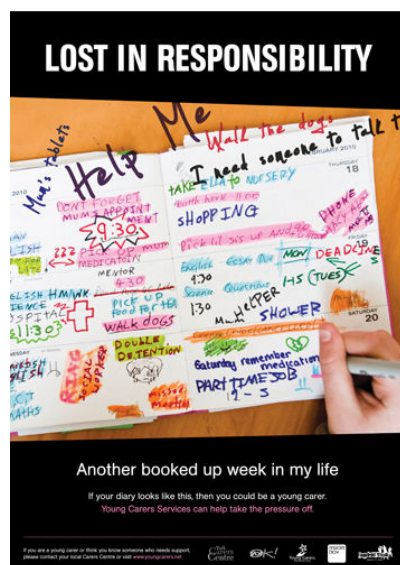 LOST IN RESPONSIBILITY
Mum's tablets
Help Me
Walk the dogs
I need someone to talk t
FEBRUARY 2010
2010
THURSDAY
18
DON'T FORGET
MUM'S APPOINT
MENT
9:30
TAKE ELLA to NURSERY
SHOPPING
PHONE
PICK UP MUM
MEDICATOIN
MENTOR
4:30
Pick lil sis up
FRIDAY
19
English - ESSAY DUE
MON
DEADLINES
1:30
Science Questions
1-5 (TUES)
1:30
HELPER
SHOWER
GLISH HM/WK
IENCE
SPITAL
11:30
PICK UP
food for tea
WALK dogs
SATURDAY
20
DOUBLE
DETENTION
RING
SOCIAL
WORKER
Saturday remember
medication
PART TIME JOB
9 - 5
missed
meeting
ATHS
Another booked up week in my life
If your diary looks like this, then you could be a young carer.
Young Carers Services can help take the pressure off.
If you are a young carer or think you know someone who needs support,
please contact your local Carers Centre or visit www.youngcarers.net
York
Carers
Centre
Young Carers